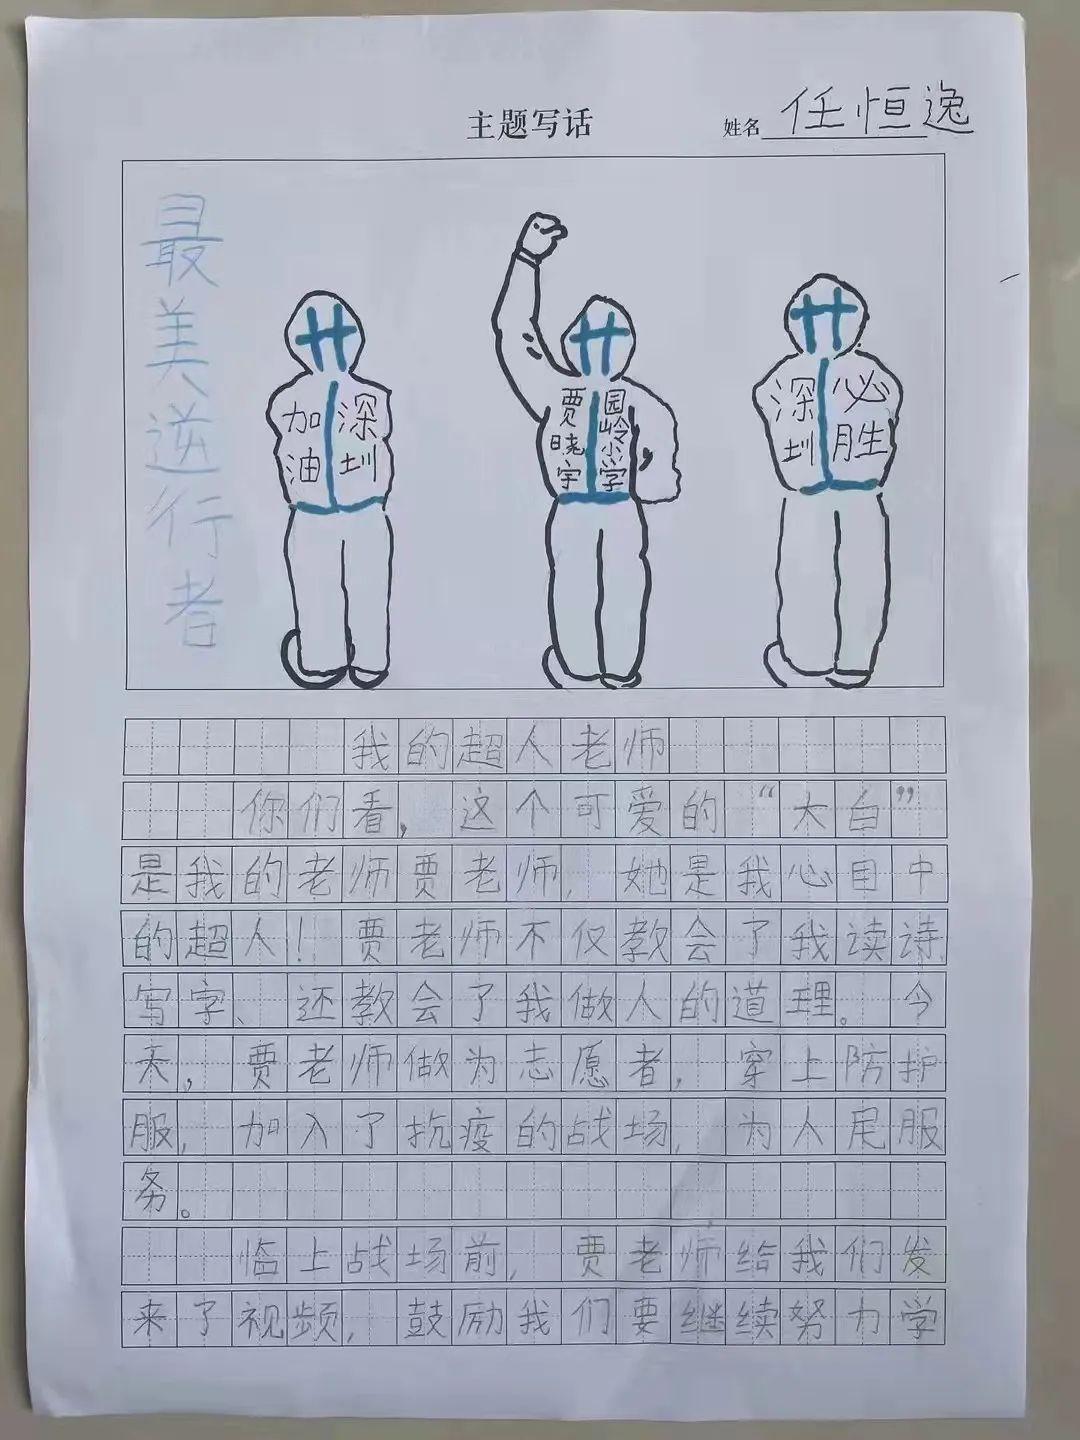 主题写话
姓名 任恒逸
最美逆行者
加油 深圳
贾晓宇 园岭小学
深圳 必胜
我的超人老师
你们看，这个可爱的“大白”
是我的老师贾老师，她是我心目中
的超人！贾老师不仅教会了我读诗、
写字、还教会了我做人的道理。今
天，贾老师做为志愿者，穿上防护
服，加入了抗疫的战场，为人民服
务。
临上战场前，贾老师给我们发
来了视频，鼓励我们要继续努力学